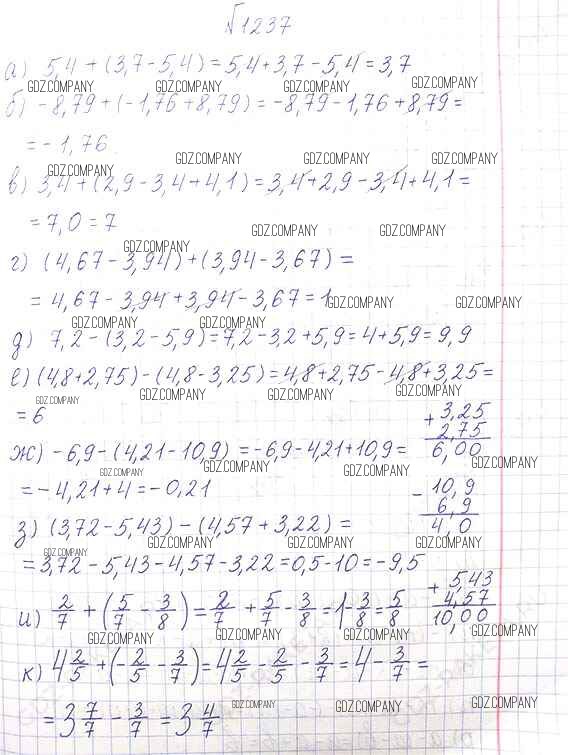 №1237
а) 5,4 + (3,7 - 5,4) = 5,4 + 3,7 - 5,4 = 3,7
GDZ.COMPANY GDZ.COMPANY GDZ.COMPANY GDZ.COMPANY
б) -8,79 + (-1,76 + 8,79) = -8,79 - 1,76 + 8,79 =
= -1,76
GDZ.COMPANY GDZ.COMPANY GDZ.COMPANY GDZ.COMPANY
в) 3,4 + (2,9 - 3,4 + 4,1) = 3,4 + 2,9 - 3,4 + 4,1 =
= 7,0 = 7
GDZ.COMPANY GDZ.COMPANY GDZ.COMPANY
г) (4,67 - 3,94) + (3,94 - 3,67) =
= 4,67 - 3,94 + 3,94 - 3,67 = 1
GDZ.COMPANY GDZ.COMPANY
GDZ.COMPANY GDZ.COMPANY
д) 7,2 - (3,2 - 5,9) = 7,2 - 3,2 + 5,9 = 4 + 5,9 = 9,9
е) (4,8 + 2,75) - (4,8 - 3,25) = 4,8 + 2,75 - 4,8 + 3,25 =
GDZ.COMPANY GDZ.COMPANY GDZ.COMPANY GDZ.COMPANY
= 6
+ 3,25
2,75
6,00
ж) -6,9 - (4,21 - 10,9) = -6,9 - 4,21 + 10,9 =
GDZ.COMPANY GDZ.COMPANY GDZ.COMPANY GDZ.COMPANY
= -4,21 + 4 = -0,21
- 10,9
6,9
4,0
з) (3,72 - 5,43) - (4,57 + 3,22) =
GDZ.COMPANY GDZ.COMPANY GDZ.COMPANY GDZ.COMPANY
= 3,72 - 5,43 - 4,57 - 3,22 = 0,5 - 10 = -9,5
+ 5,43
4,57
10,00
и) 2/7 + (5/7 - 3/8) = 2/7 + 5/7 - 3/8 = 1 - 3/8 = 5/8
GDZ.COMPANY GDZ.COMPANY GDZ.COMPANY GDZ.COMPANY
к) 4 2/5 + (-2/5 - 3/7) = 4 2/5 - 2/5 - 3/7 = 4 - 3/7 =
= 3 7/7 - 3/7 = 3 4/7
GDZ.COMPANY GDZ.COMPANY GDZ.COMPANY